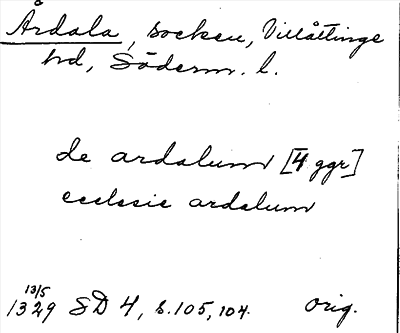 Årdala, socken, Villåttinge
hd, Söderm. l.
de ardalum [4 ggr]
ecclesie ardalum
13/5
1329 SD 4, s. 105, 104. orig.